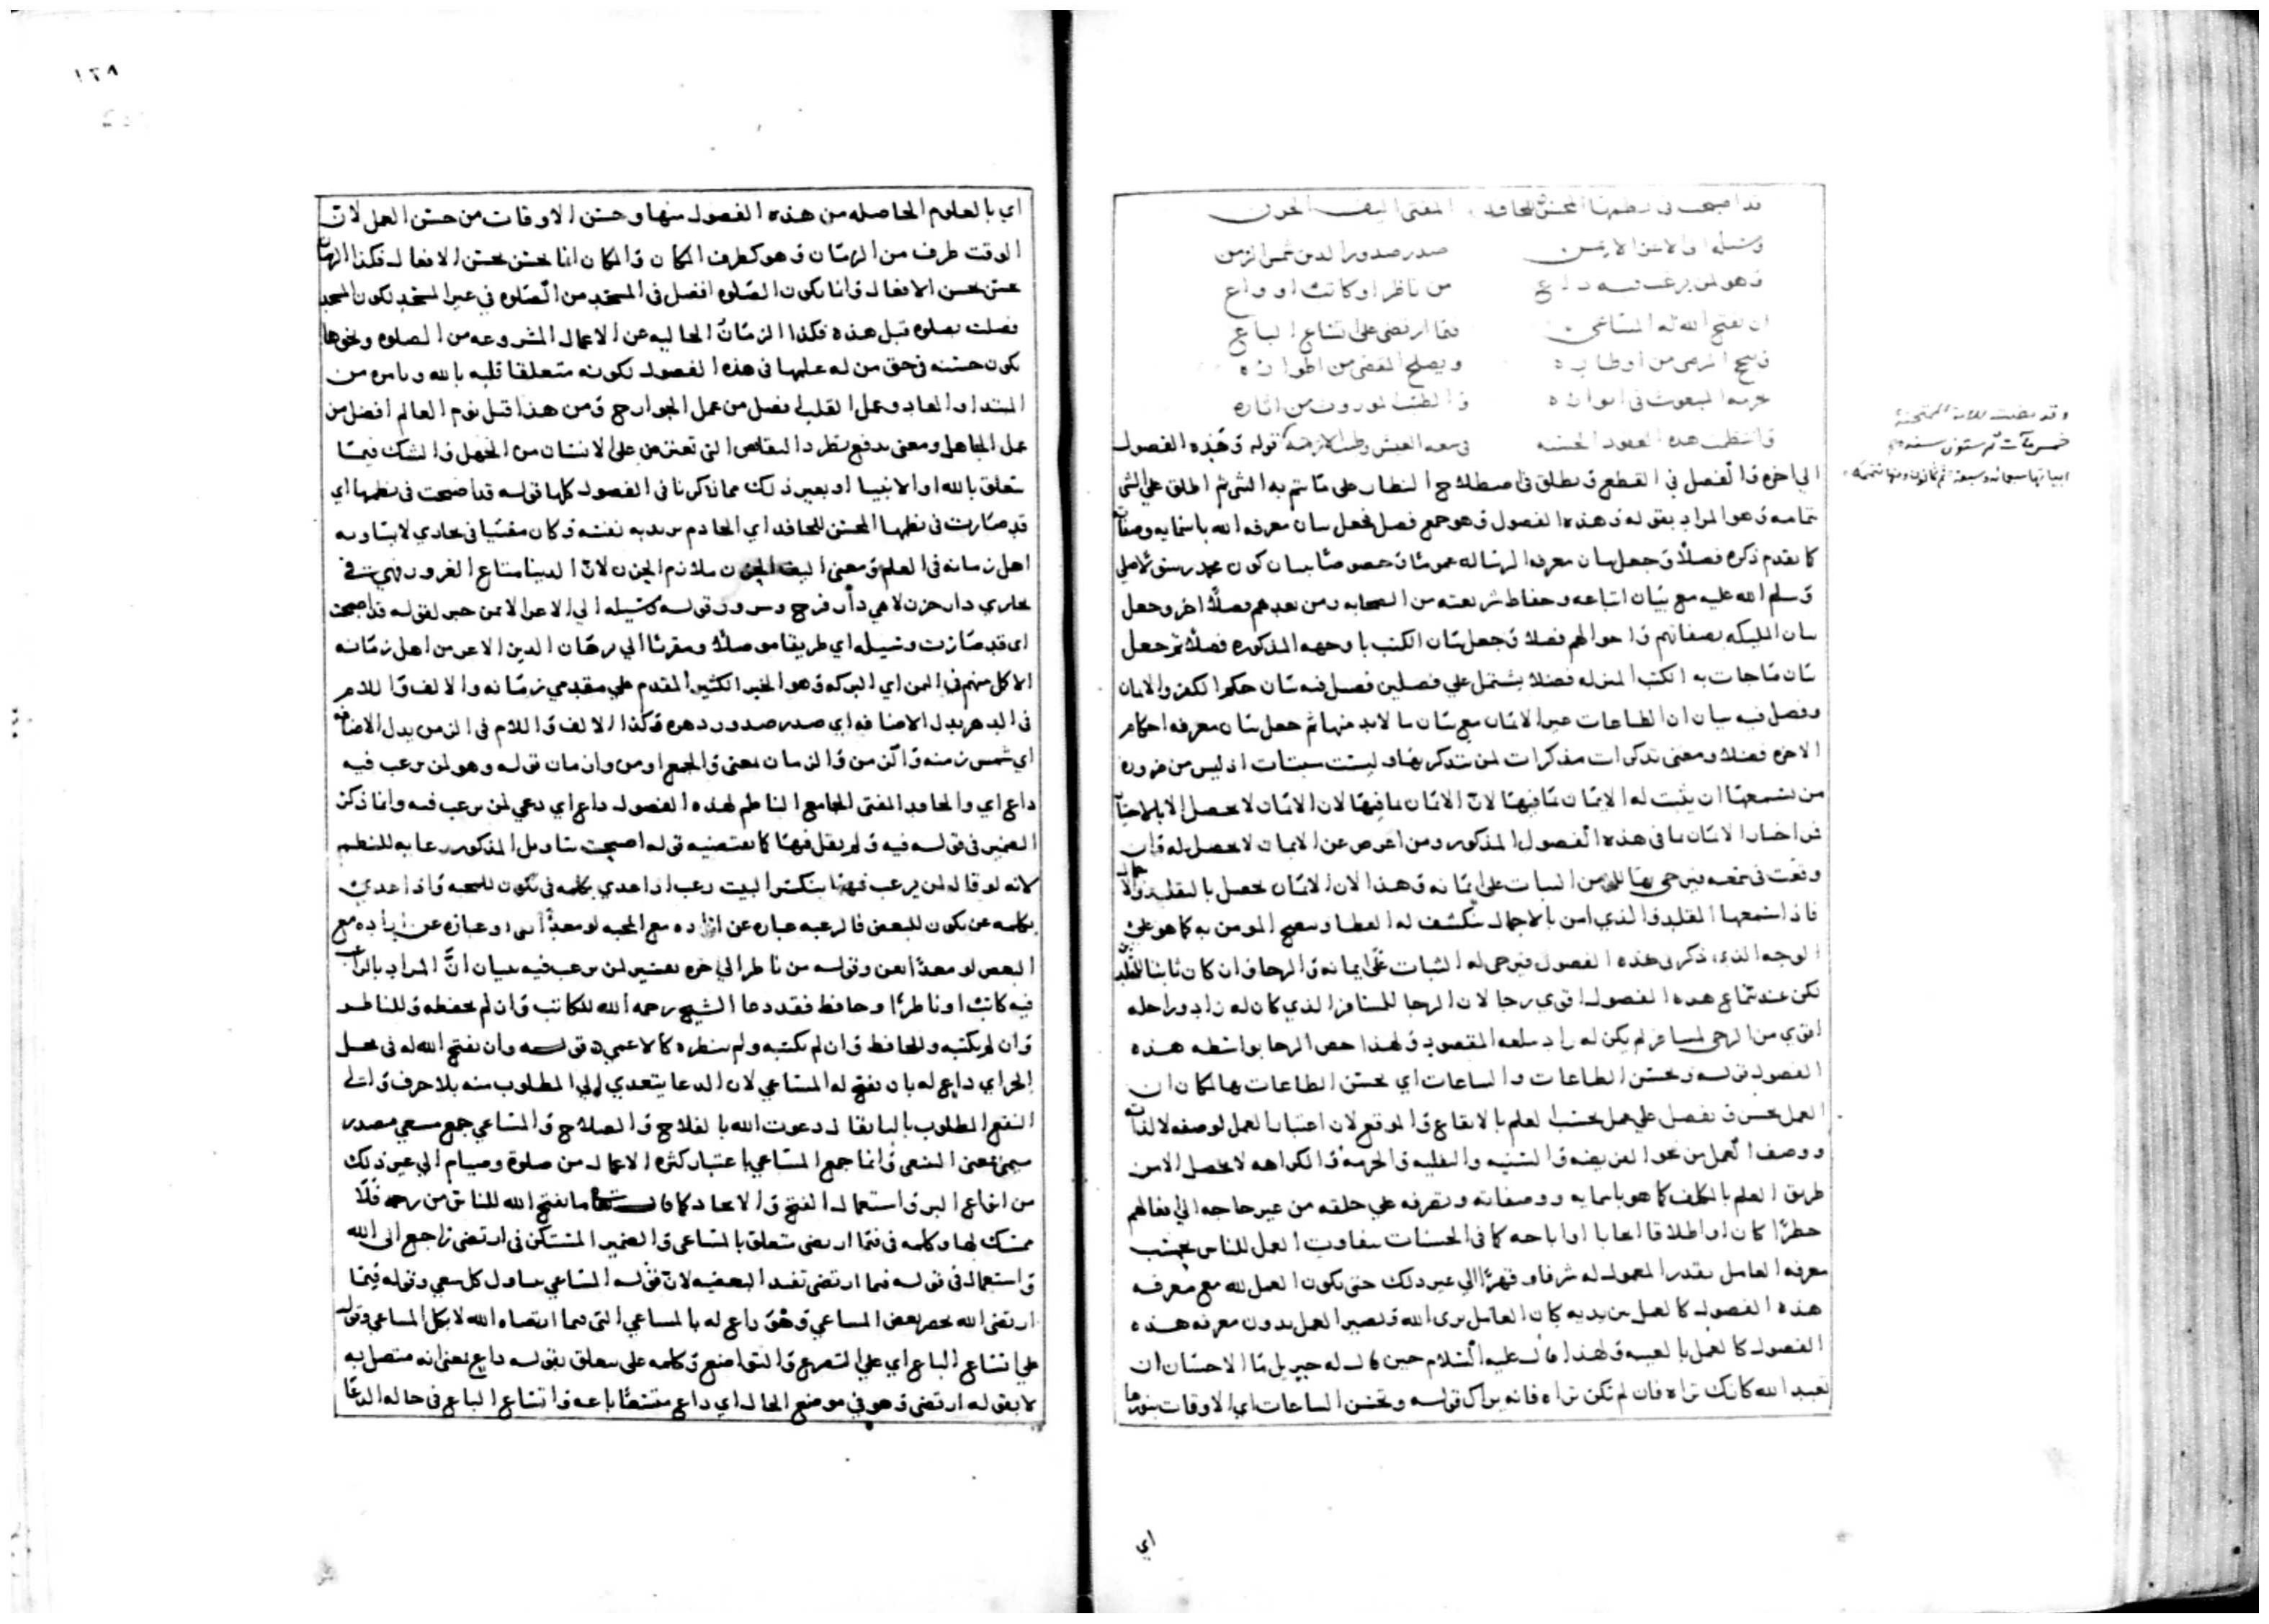 قد اصبحت فى نظمها المحسن للحافد المفتى اليف الحزن
وسيله الى الاعز الايمن صدر صدور الدين شمس الزمن
وهو لمن يرغب فيه داع من ناظر او كاتب او واع
ان يفتح الله له المساعى فيما ارتضى على اتساع الباع
فى سعه العيش وطيب الازمنه قوله وهذه الفصول
الى اخره والفصل فى القطع ويطلق فى اصطلاح النظار على ما يتم به الشى ثم اطلق على الشى
بتمامه وهو المراد بقوله وهذه الفصول وهو جمع فصل فجعل بيان معرفه الله باسمايه وصفاته
كما تقدم ذكره فصلا وجعل بيان معرفه الرساله عموما وخصوصا ببيان كون محمد رسولا صلى
وسلم الله عليه مع بيان اتباعه وحفاظ شريعته من الصحابه ومن بعدهم فصلا اخر وجعل
بيان المليكه بصفاتهم واحوالهم فصلا وجعل بيان الكتب باوجهه المذكوره فصلا ثم جعل
بيان ما جات به الكتب المنزله فصلا يشتمل على فصلين فصل فيه بيان حكم الكفر والايمان
وفصل فيه بيان ان الطاعات غير الايمان مع بيان ما لابد منها ثم جعل بيان معرفه احكام
الاخره فصلا ومعنى تذكرات مذكرات لمن يتذكر بها وليست مبتات اذ ليس من ضروره
من يسمعها ان يثبت له الايمان بما فيها لان الايمان بما فيها لان الايمان لا يحصل الا بالاختيار
فمن اختار الايمان بما فى هذه الفصول المذكوره ومن اعرض عن الايمان لا يحصل له وان
وقعت فى سمعه فيرجى بها للمومن الثبات على ايمانه وهذا لان الايمان يحصل بالتقليد والاجمال
فاذا استمعها المقلد والذى امن بالاجمال ينكشف له الغطا ويتضح المومن به كما هو على
الوجه الذى ذكر فى هذه الفصول فيرجى له الثبات على ايمانه والرجا وان كان ثابتا للمقلد
لكن عند سماع هذه الفصول اقوى رجا لان الرجا للمسافر الذى كان له زاد وراحله
اقوى من الرجى لمسافر لم يكن له زاد يبلغه المقصود ولهذا خص الرجا بواسطه هذه
الفصول قوله وتحسن الطاعات والساعات اى تحسن الطاعات بها لمكان ان
العمل يحسن ويفضل على عمل بحسب العلم بالايقاع والموقع لان اعتبار العمل لوصفه لا لذاته
ووصف العمل من نحو الفريضه والسنيه والنفليه والحرمه والكراهه لا يحصل الا من
طريق العلم بالمكلف كما هو باسمايه ووصفاته وتصرفه على خلقه من غير حاجه الى فعالهم
حظرا كان او اطلاقا ايجابا او اباحه كما فى الحسنات يتفاوت العمل للناس بحسب
معرفه العامل بقدر المعمول له شرفا وقهرا الى غير ذلك حتى يكون العمل لله مع معرفه
هذه الفصول كالعمل بين يديه كان العامل يرى الله ويصير العمل بدون معرفه هذه
الفصول كالعمل بالغيبه ولهذا قال عليه السلام حين قال له جبريل ما الاحسان ان
تعبد الله كانك تراه فان لم تكن تراه فانه يراك قوله وتحسن الساعات اى الاوقات بنورها
اى
١٢٨
اى بالعلوم الحاصله من هذه الفصول منها وحسن الاوقات من حسن العمل لان
الوقت طرف من الزمان وهو كطرف المكان والمكان انما يحسن بحسن الافعال فكذا الزمان
يحسن بحسن الافعال وانما يكون الصلوه افضل فى المسجد من الصلوه فى غير المسجد لكون المسجد
فضلت بصلوه قبل هذه فكذا الزمان الخاليه عن الاعمال المشروعه من الصلوه ونحوها
يكون حسنه فى حق من له علمها فى هذه الفصول لكونه متعلقا قلبه بالله وبامره من
المبتدا والمعاد وعمل القلب افضل من عمل الجوارح ومن هذا قيل نوم العالم افضل من
عمل الجاهل ومعنى يدفع يطرد النقايص التى تعترض على الانسان من الجهل والشك فيما
يتعلق بالله او الانبيا او بغير ذلك مما ذكرنا فى الفصول كلها قوله قد اصبحت فى نظمها اى
قد صارت فى نظمها المحسن للحافد اى الخادم يريد به نفسه وكان مفتيا فى بخارى لا يساويه
اهل زمانه فى العلم ومعنى اليف الحزن ملازم الحزن لان الدنيا متاع الغرور فهى فى
بخارى دار حزن لا هى دار فرح وسرور قوله وسيله الى الاعز الايمن خبر لقوله قد اصبحت
اى قد صارت وسيله اى طريقا موصلا ومقربا الى برهان الدين الاعز من اهل زمانه
الاكل منهم فى اليمن اى البركه وهو الخير الكثير المقدم على مقدمى زمانه والالف واللام
فى الدهر بدل الاضافه اى صدر صدور دهره وكذا الالف واللام فى الزمن بدل الاضافه
اى شمس زمنه والزمن والزمان بمعنى والجمع ازمن وازمان قوله وهو لمن يرغب فيه
داع اى والحافد المفتى الجامع الناظم لهذه الفصول داع اى دعى لمن يرغب فيه وانما ذكر
الضمير فى قوله فيه ولم يقل فيها كما يقتضيه قوله اصبحت بتاويل المذكور رعايه للنظم
لانه لو قال لمن يرغب فيها ينكسر البيت رغب اذا عدى بكلمه فى يكون للمحبه واذا عدى
بكلمه عن يكون للبغض فالرغبه عباره عن اراده مع المحبه لو معدا بفى او عباره عن اراده مع
البغض لو معدا بعن وقوله من ناظر الى اخره تفسير لمن يرغب فيه ببيان ان المراد بالراغب
فيه كاتبا او ناظرا او حافظ فقد دعا الشيخ رحمه الله للكاتب وان لم يحفظه وللناظر
وان لم يكتبه وللحافظ وان لم يكتبه ولم ينظره كالاعمى قوله وان يفتح الله له فى محل
الجر اى داع له بان يفتح له المساعى لان الدعا يتعدى الى المطلوب منه بلا حرف والى
النفع المطلوب بالبا يقال دعوت الله بالفلاح والصلاح والمساعى جمع مسعى مصدر
ميمى بمعنى السعى وانما جمع المساعى باعتبار كثره الاعمال من صلوة وصيام الى غير ذلك
من انواع البر واستعمال الفتح والايجاد كما قال ما يفتح الله للناس من رحمه فلا
ممسك لها وكلمه فى فيما ارتضى يتعلق بالمساعى والضمير المستكن فى ارتضى راجع الى الله
واستعمال فى قوله فيما ارتضى تفيد البعضيه لان قوله المساعى يتناول كل سعى وقوله فيما
ارتضى الله يخص بعض المساعى وهو داع له بالمساعى التى فيما ارتضاه الله لا بكل المساعى وقوله
على اتساع الباع اى على التضرع والتواضع وكلمه على يتعلق بقوله داع يعنى انه متصل به
لا بقوله ارتضى وهو فى موضع الحال اى داع متسعا باعه واتساع الباع فى حاله الدعا